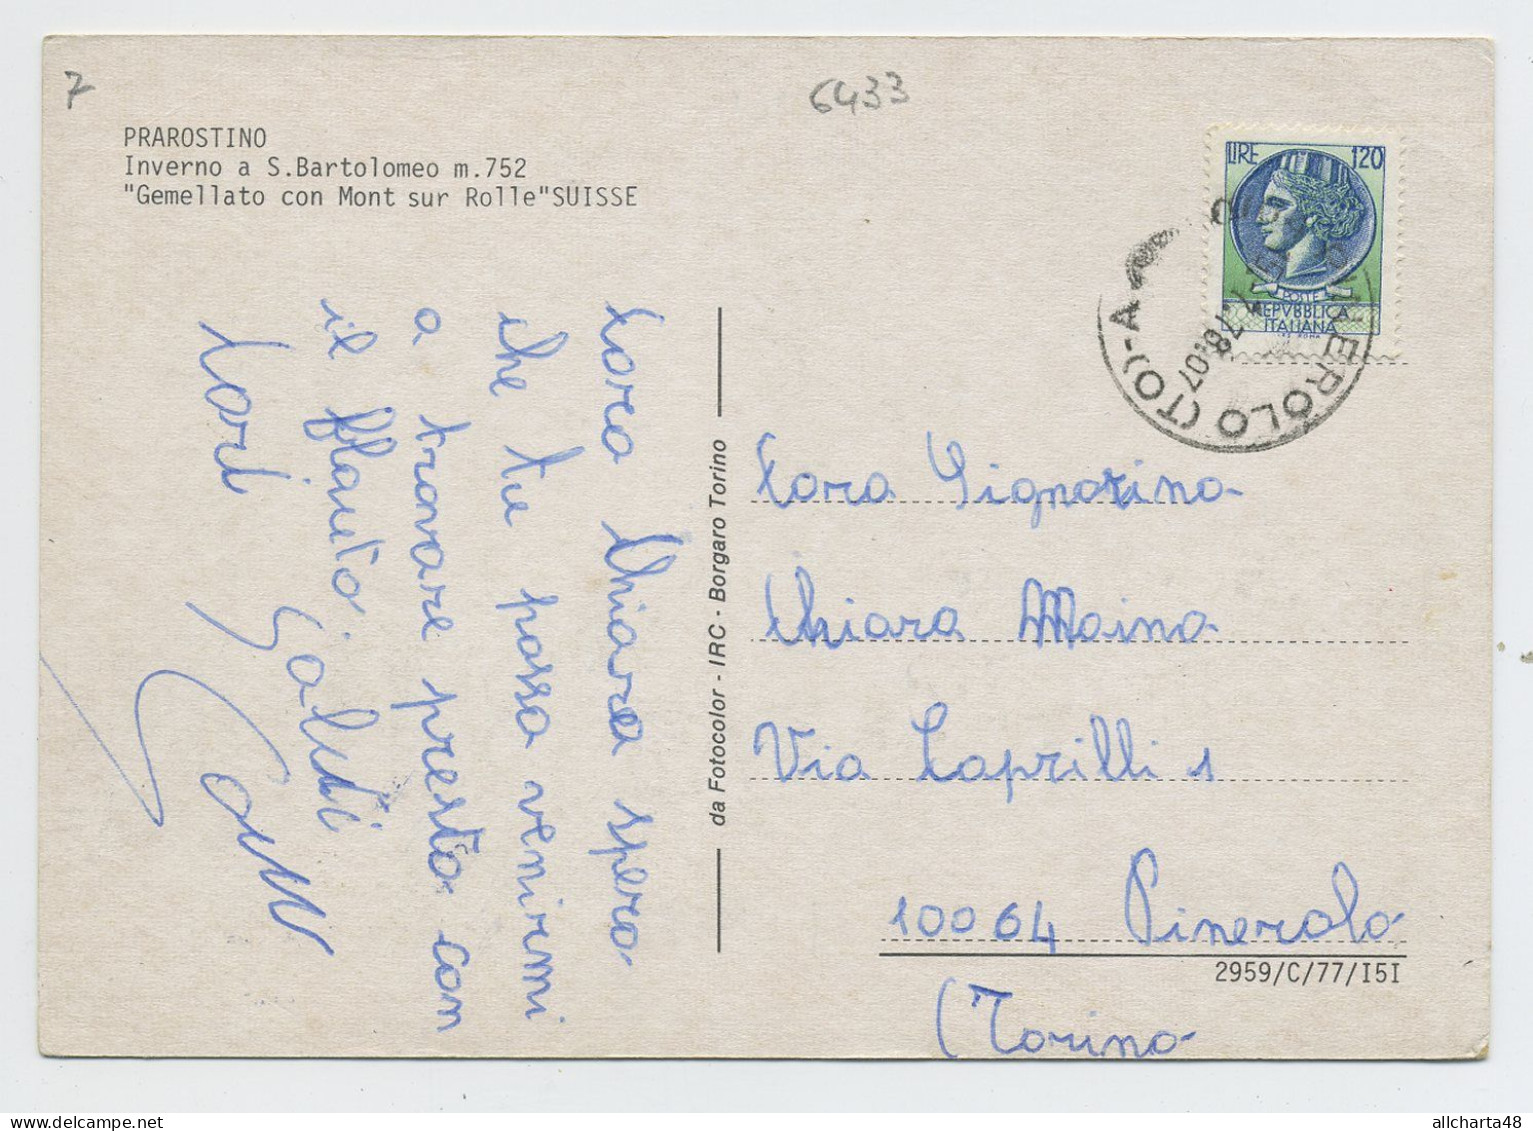 7
6433
PRAROSTINO
Inverno a S.Bartolomeo m.752
"Gemellato con Mont sur Rolle"SUISSE
LIRE 120
POSTE
REPVBBLICA
ITALIANA
PINEROLO (TO)-A
Cara Chiara spero
che tu possa venirmi
a trovare presto con
il flauto.
Saluti
da Fotocolor - IRC - Borgaro Torino
Cara Signorina
Chiara Maina
Via Caprilli 1
10064 Pinerolo
(Torino
2959/C/77/I5I
allcharta48